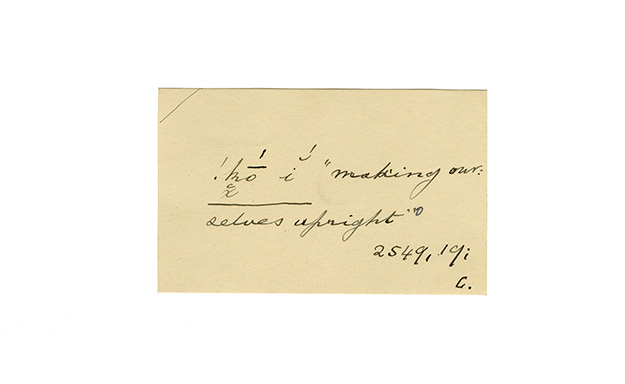 !k̲o̅ í "making our=
selves upright"
2549, 19;
C.